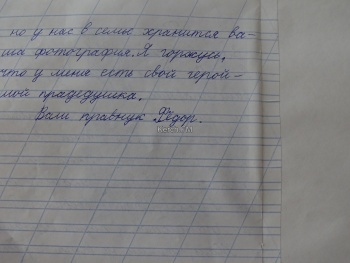 но у нас в семье хранится ва-
ша фотография. Я горжусь,
что у меня есть свой герой-
мой прадедушка.
Ваш правнук Фёдор.